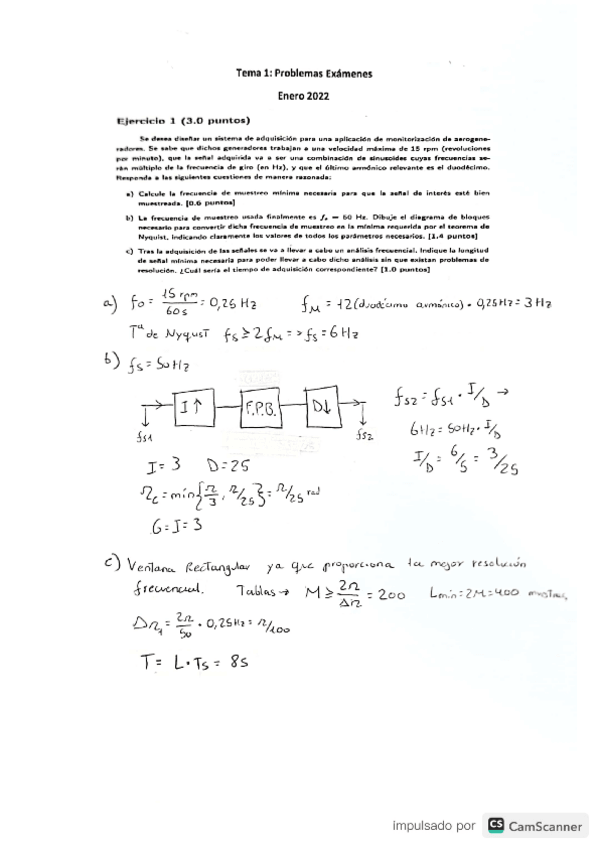 Tema 1: Problemas Exámenes
Enero 2022
Ejercicio 1 (3.0 puntos)
Se desea diseñar un sistema de adquisición para una aplicación de monitorización de aerogene-
radores. Se sabe que dichos generadores trabajan a una velocidad máxima de 15 rpm (revoluciones
por minuto), que la señal adquirida va a ser una combinación de sinusoides cuyas frecuencias se-
rán múltiplo de la frecuencia de giro (en Hz), y que el último armónico relevante es el duodécimo.
Responda a las siguientes cuestiones de manera razonada:
a) Calcule la frecuencia de muestreo mínima necesaria para que la señal de interés esté bien
muestreada. [0.6 puntos]
b) La frecuencia de muestreo usada finalmente es fs = 50 Hz. Dibuje el diagrama de bloques
necesario para convertir dicha frecuencia de muestreo en la mínima requerida por el teorema de
Nyquist, indicando claramente los valores de todos los parámetros necesarios. [1.4 puntos]
c) Tras la adquisición de las señales se va a llevar a cabo un análisis frecuencial. Indique la longitud
de señal mínima necesaria para poder llevar a cabo dicho análisis sin que existan problemas de
resolución. ¿Cuál sería el tiempo de adquisición correspondiente? [1.0 puntos]
a) fo = 15 rpm / 60 s = 0,25 Hz fM = 12 (duodécimo armónico) · 0,25Hz = 3 Hz
Tª de Nyqust fs ≥ 2fM => fs = 6Hz
b) fs = 50Hz
I↑ F.P.B. D↓ fs2 = fs1 · I/D →
fs1 fs2 6Hz = 50Hz · I/D
I = 3 D = 25 I/D = 6/5 = 3/25
Ωc = min{π/3, π/25} = π/25 rad
G = I = 3
c) Ventana Rectangular ya que proporciona la mejor resolución
frecuencial. Tablas → M ≥ 2π/ΔΩ = 200 Lmin = 2M = 400 muestras
ΔΩ1 = 2π/50 · 0,25Hz = π/100
T = L · Ts = 8s
impulsado por CS CamScanner